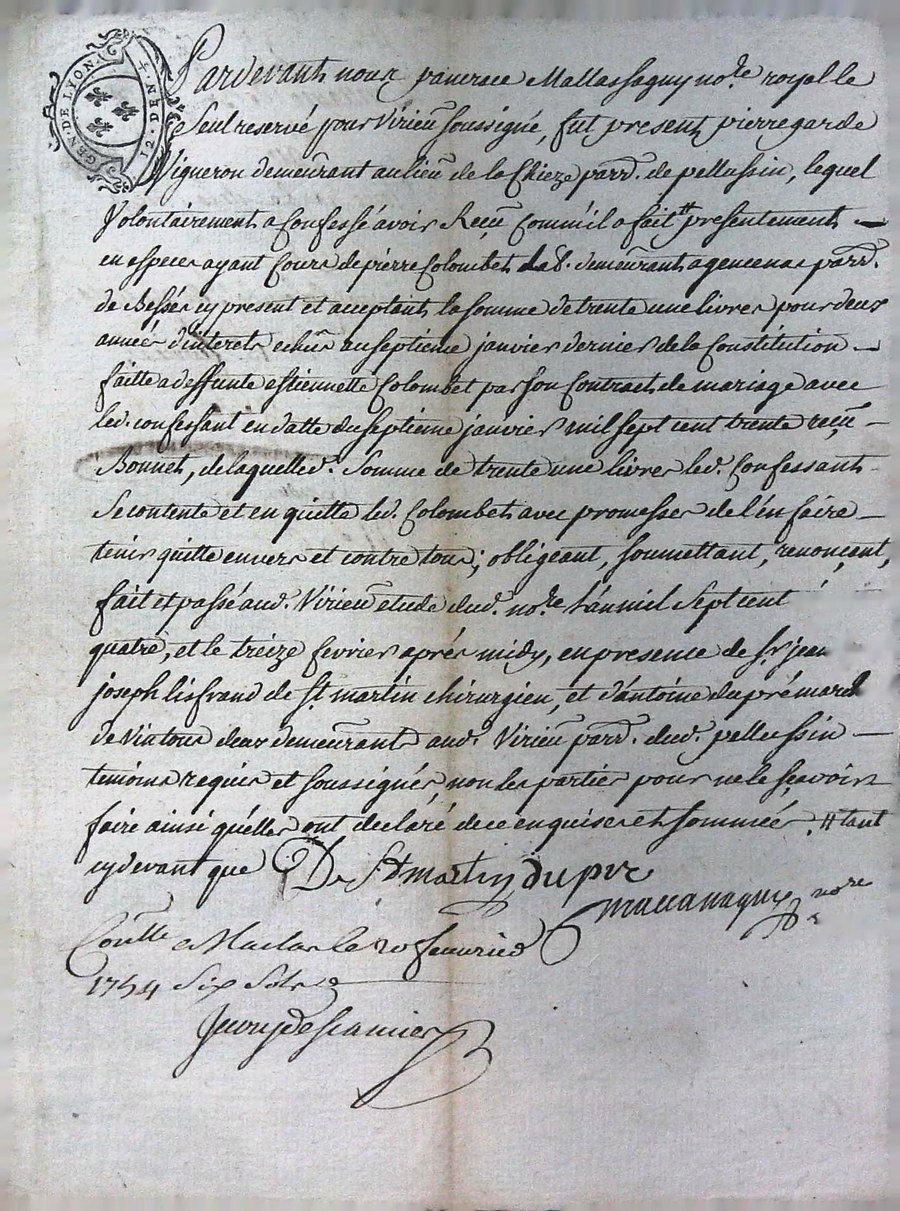 GEN. DE LYON
12. DEN. 4
Pardevant nous pancrace Mallassagny no.re royal le
Seul reservé pour Virieu soussigné, fut present pierre garde
Vigneron demeurant au lieu de la Chieze parr. de pellussin, lequel
Volontairement a Confessé avoir Reçu Comm'il a fait # presentement
en especes ayant Cours de pierre Colombet demeurant a parr.
de Bessés cy present et acceptant la somme de trente une livres pour deux
années d'interets echus au septieme janvier dernier de la Constitution
faitte a deffunte estiennette Colombet par son Contract de mariage avec
led. confessant en datte du septieme janvier mil sept cent trente reçu
Bonnet, de laquelle d. Somme de trente une livres led. Confessant
Se contente et en quitte led. Colombet avec promesses de l'en faire
tenir quitte envers et contre tous; obligeant, soumettant, renonçant,
fait et passé aud. Virieu etude dud. no.re L'an mil Sept cent
quatre, et le treize fevrier aprés midy, en presence de S.r jean
joseph lisfrand de St. martin chirurgien, et d'antoine dupré
demeurants aud. Virieu parr. dud. pellussin
temoins requis et soussignés non les parties pour ne le sçavoir
faire ainsi qu'elles ont declaré de ce enquises et sommées, # tant
cy devant que De St martin dupre
nore
Conlle a Maclas le 20 feuvrier
1754 Six Sols